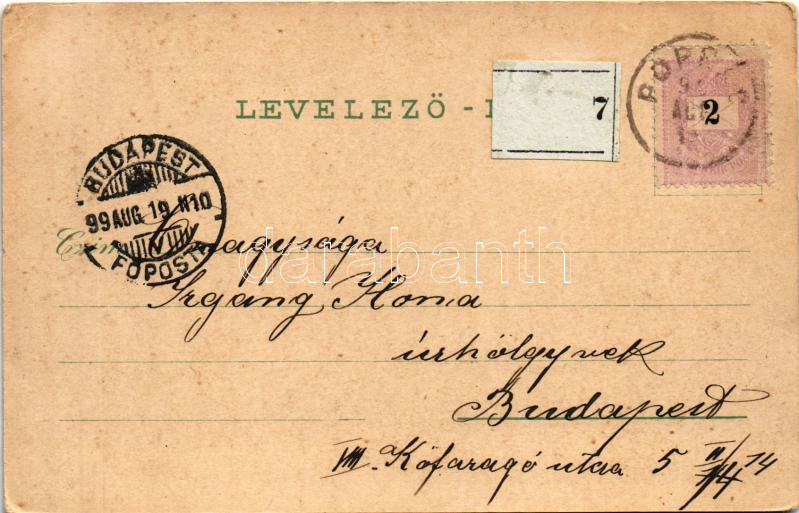 LEVELEZŐ -
7
2
BUDAPEST
99 AUG. 19 N10
FŐPOSTA
Czím
Őnagysága
Irgáng Ilona
úrhölgynek
Budapest
VIII. Kőfaragó utcza 5 II/14 14
darabanth